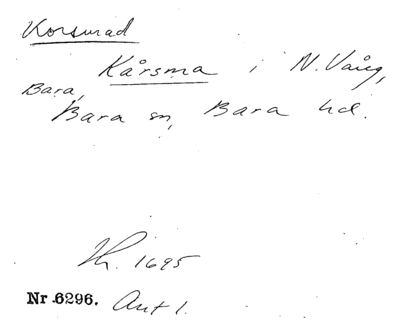 Korsmad
Kårsma i N. Vång,
Bara,
Bara sn, Bara hd.
1695
Nr 6296. Ant 1.